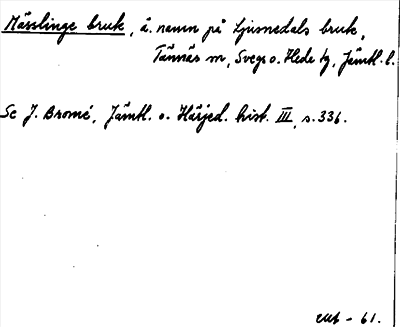 Mässlinge bruk, ä. namn på Ljusnedals bruk,
Tännäs sn, Svegs o. Hede tg, Jämtl. l.
Se J. Bromé, Jämtl. o. Härjed. hist. III, s. 336.
- 61.